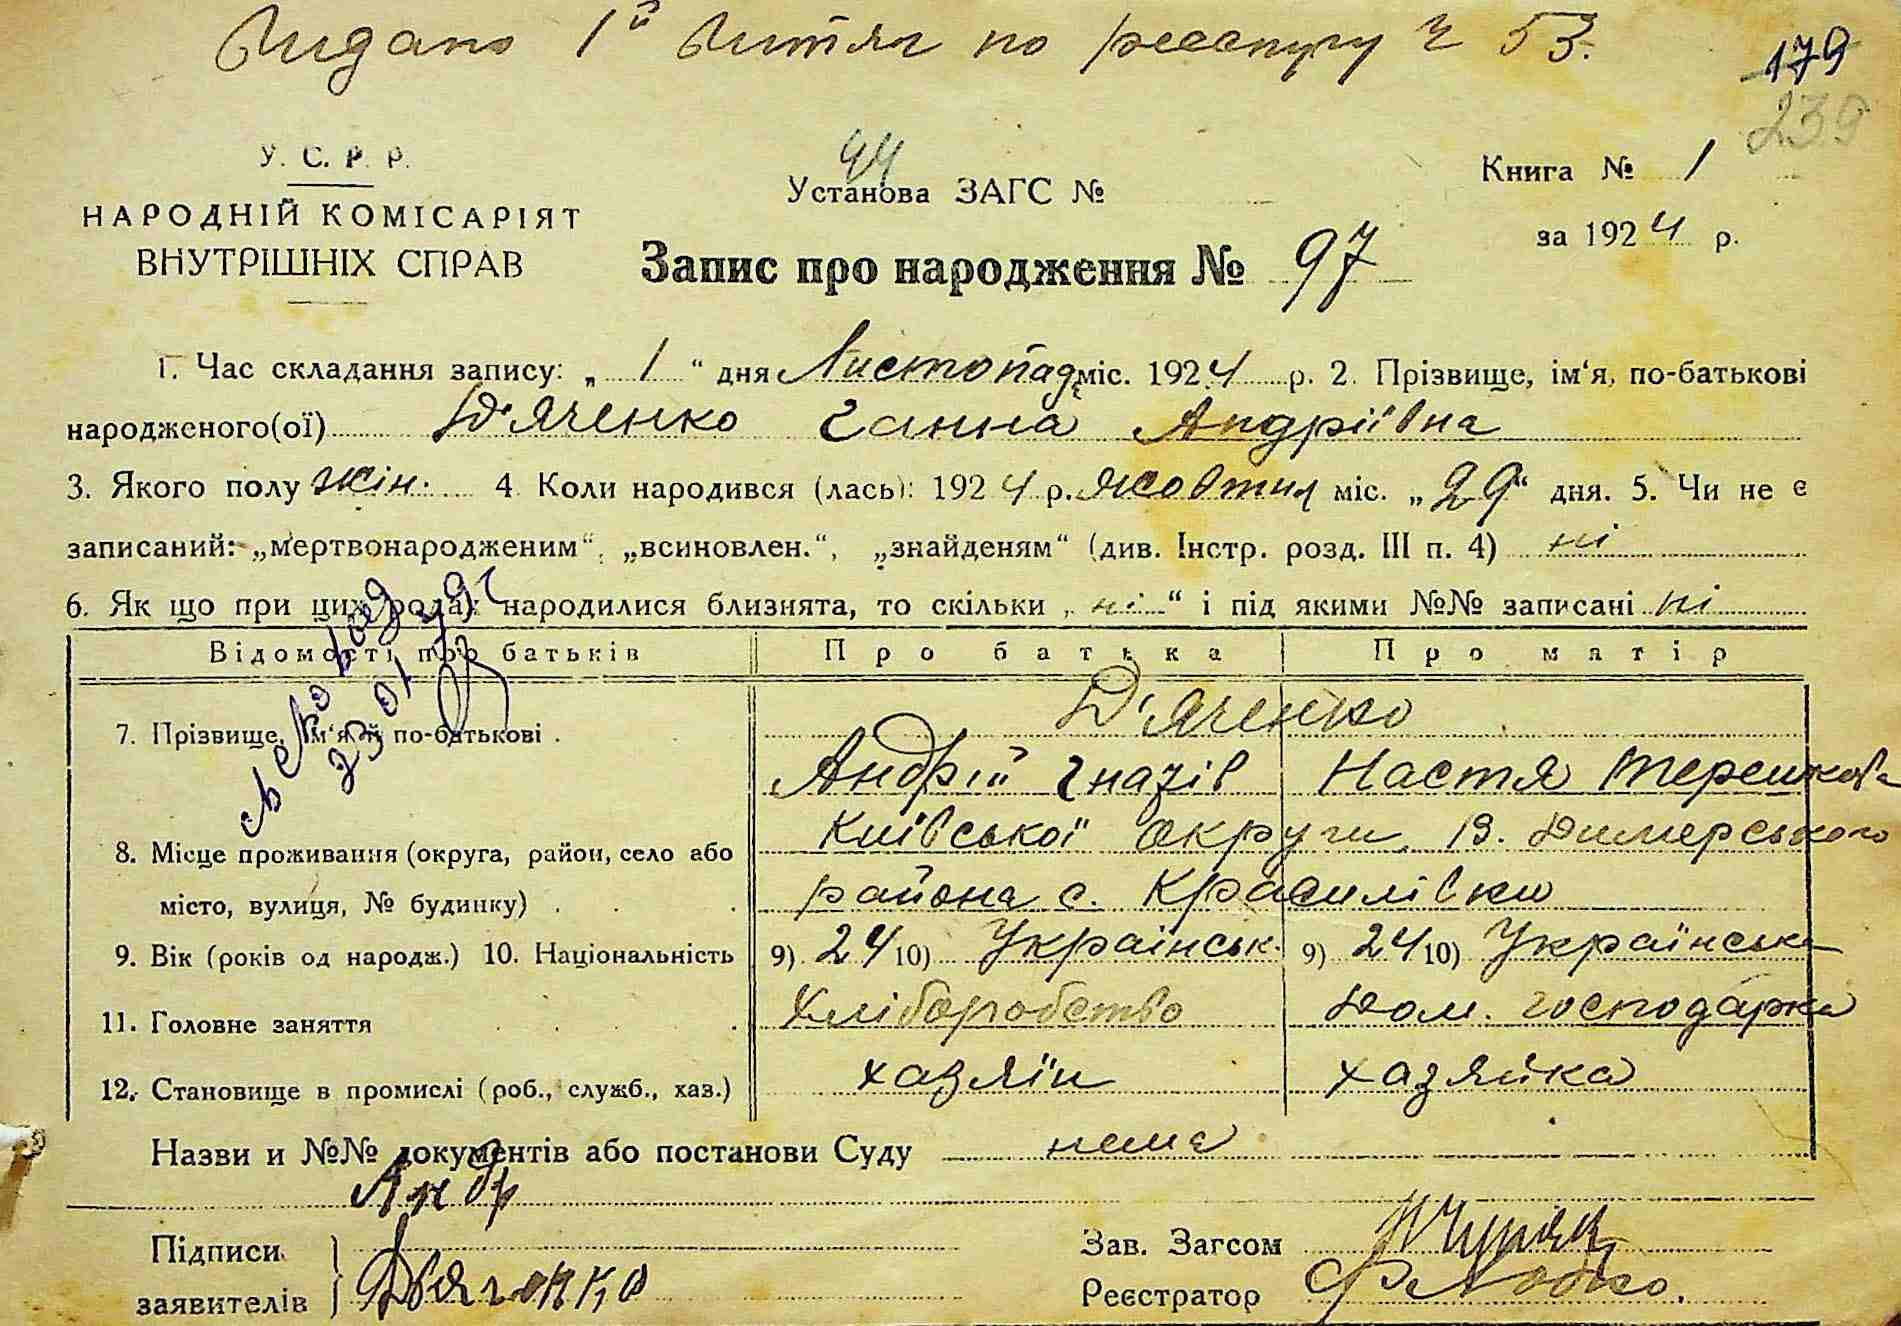 Видано 1й витяг по реєстру ч 53.
179
239
У. С. Р. Р.
НАРОДНІЙ КОМІСАРІЯТ
ВНУТРІШНІХ СПРАВ
44
Установа ЗАГС №
Книга № 1
за 1924 р.
Запис про народження № 97
1. Час складання запису: „ 1 “ дня Листопад міс. 1924 р. 2. Прізвище, ім‘я, по-батькові
народженого(ої) Д'яченко Ганна Андріївна
3. Якого полу жін. 4 Коли народився (лась): 1924 р. жовтня міс. „ 29 “ дня. 5. Чи не є
записаний: „мертвонародженим“, „всиновлен.“, „знайденям“ (див. Інстр. розд. III п. 4) ні
6. Як що при цих родах народилися близнята, то скільки „ ні “ і під якими №№ записані ні
Відомості про батьків Про батька Про матір
Д'яченко
7. Прізвище, ім‘я й по-батькові .
Андрій Гназів Настя Терешкова
Київської округи, В. Димерського
8. Місце проживання (округа, район, село або
місто, вулиця, № будинку) . . .
района с. Красилівки
9. Вік (років од народж.) 10. Національність 9) 24 10) Українськ. 9) 24 10) Українська
11. Головне заняття . . . . Хліборобство Дом. господарка
12. Становище в промислі (роб., служб., хаз.) хазяїн хазяйка
Назви и №№ документів або постанови Суду нема
Андр
Підписи
заявителів
Дяченко
Зав. Загсом
Реєстратор